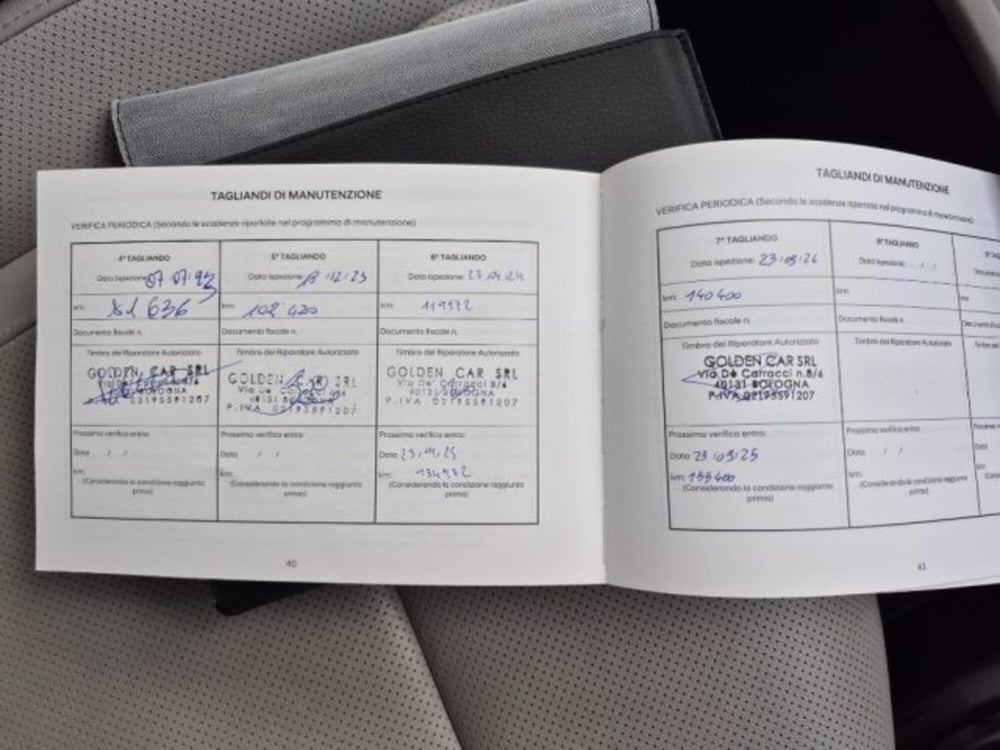 TAGLIANDI DI MANUTENZIONE
VERIFICA PERIODICA (Secondo le scadenze riportate nel programma di manutenzione)
4° TAGLIANDO
Data ispezione: 07 07
km: 81 636
Documento fiscale n.
Timbro del Riparatore Autorizzato
GOLDEN CAR SRL
40131 BOLOGNA
P.IVA 02195591207
Prossima verifica entro:
Data / /
km:
(Considerando la condizione raggiunta
prima)
5° TAGLIANDO
Data ispezione: 12.23
km: 102.420
Documento fiscale n.
Timbro del Riparatore Autorizzato
GOLDEN CAR SRL
Via De
40131 BOLOGNA
P.IVA 02195591207
Prossima verifica entro:
Data / /
km:
(Considerando la condizione raggiunta
prima)
6° TAGLIANDO
Data ispezione: 23 04 24
km: 119972
Documento fiscale n.
Timbro del Riparatore Autorizzato
GOLDEN CAR SRL
Via De' Carracci 8/6
40131 BOLOGNA
P.IVA 02195591207
Prossima verifica entro:
Data 23/04/25
km: 134972
(Considerando la condizione raggiunta
prima)
40
TAGLIANDI DI MANUTENZIONE
VERIFICA PERIODICA (Secondo le scadenze riportate nel programma di manutenzione)
7° TAGLIANDO
Data ispezione: 23
km: 140400
Documento fiscale n.
Timbro del Riparatore Autorizzato
GOLDEN CAR SRL
Via De Carracci n.8/6
40131 BOLOGNA
P.IVA 02195591207
Prossima verifica entro:
Data 23 25
km: 155400
(Considerando la condizione raggiunta
prima)
8° TAGLIANDO
Data ispezione: / /
km:
Documento fiscale n.
Timbro del Riparatore Autorizzato
Prossima verifica entro:
Data / /
km:
(Considerando la condizione raggiunta
prima)
41